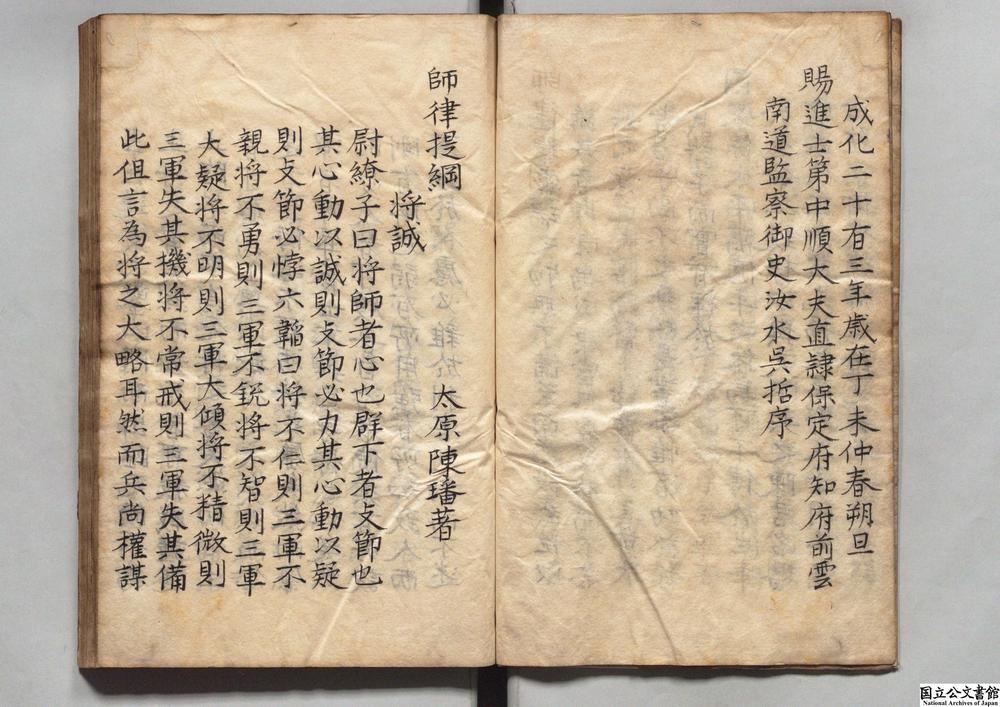 成化二十有三年歳在丁未仲春朔旦
賜進士第中順大夫直隷保定府知府前雲
南道監察御史汝水呉哲序
師律提綱
太原陳璠著
将誠
尉繚子曰将師者心也群下者攴節也
其心動以誠則攴節必力其心動以疑
則攴節必悖六韜曰将不仁則三軍不
親将不勇則三軍不鋭将不智則三軍
大疑将不明則三軍大傾将不精微則
三軍失其機将不常戒則三軍失其備
此伹言為将之大略耳然而兵尚權謀
国立公文書館
National Archives of Japan